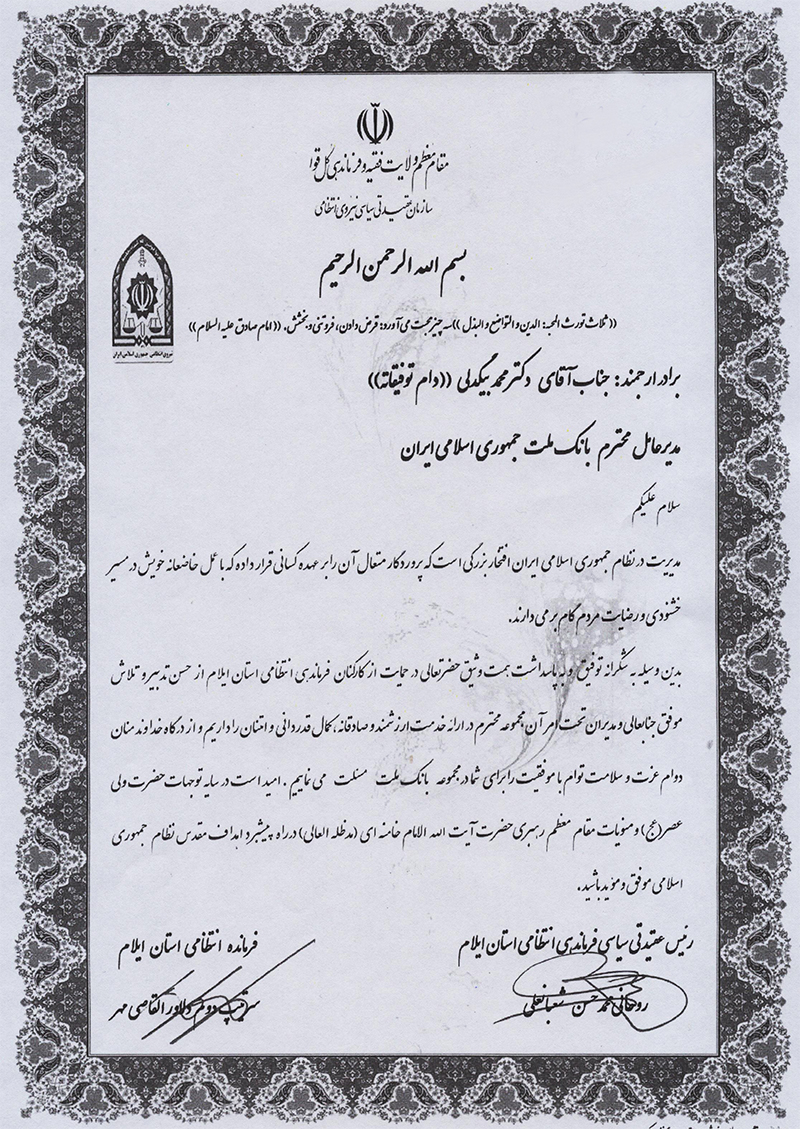 مقام معظم ولایت فقیه و فرماندهی کل قوا
سازمان عقیدتی سیاسی نیروی انتظامی
بسم الله الرحمن الرحیم
نیروی انتظامی جمهوری اسلامی ایران
((ثلاث تورث المحبه: الدین و التواضع و البذل)) سه چیز محبت می آورد: قرض دادن، فروتنی و بخشش. ((امام صادق علیه السلام))
برادر ارجمند: جناب آقای دکتر محمد بیگدلی ((دام توفیقاته))
مدیرعامل محترم بانک ملت جمهوری اسلامی ایران
سلام علیکم
مدیریت در نظام جمهوری اسلامی ایران افتخار بزرگی است که پروردگار متعال آن را بر عهده کسانی قرار داده که با عمل خاضعانه خویش در مسیر
خشنودی و رضایت مردم گام بر می دارند.
بدین وسیله به شکرانه توفیق و به پاسداشت همت وثیق حضرتعالی در حمایت از کارکنان فرماندهی انتظامی استان ایلام از حسن تدبیر و تلاش
موفق جنابعالی و مدیران تحت امر آن مجموعه محترم در ارائه خدمت ارزشمند و صادقانه، کمال قدردانی و امتنان را داریم و از درگاه خداوند منان
دوام عزت و سلامت توام با موفقیت را برای شما در مجموعه بانک ملت مسئلت می نماییم. امید است در سایه توجهات حضرت ولی
عصر(عج) و منویات مقام معظم رهبری حضرت آیت الله الامام خامنه ای (مدظله العالی) در راه پیشبرد اهداف مقدس نظام جمهوری
اسلامی موفق و موید باشید.
رئیس عقیدتی سیاسی فرماندهی انتظامی استان ایلام
روحانی محمد حسن شعبانعلی
فرمانده انتظامی استان ایلام
سرتیپ دوم دلاور القاصی مهر